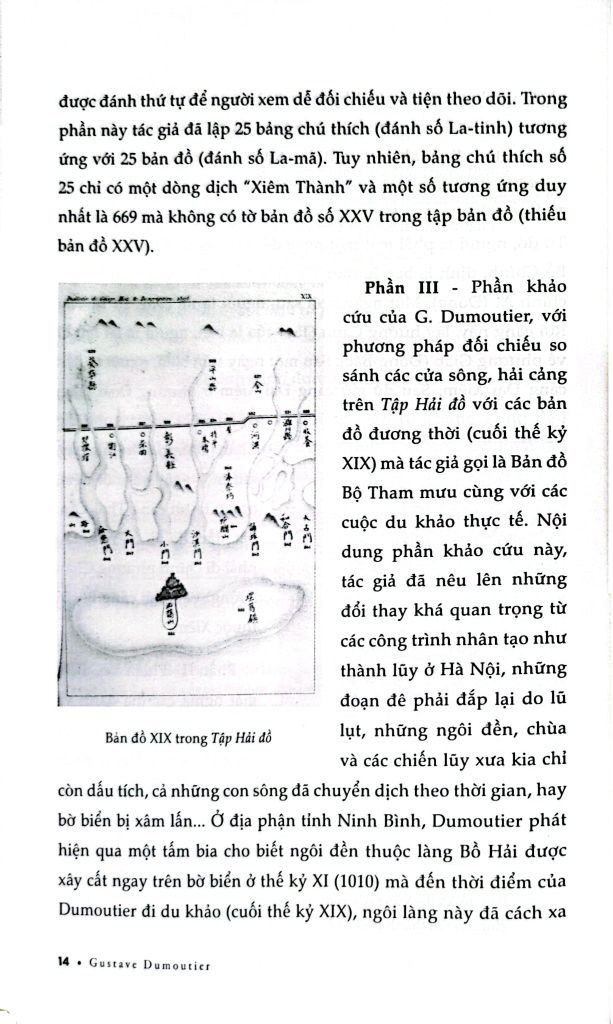 được đánh thứ tự để người xem dễ đối chiếu và tiện theo dõi. Trong
phần này tác giả đã lập 25 bảng chú thích (đánh số La-tinh) tương
ứng với 25 bản đồ (đánh số La-mã). Tuy nhiên, bảng chú thích số
25 chỉ có một dòng dịch “Xiêm Thành” và một số tương ứng duy
nhất là 669 mà không có tờ bản đồ số XXV trong tập bản đồ (thiếu
bản đồ XXV).
XIX
小門
大門
Bản đồ XIX trong Tập Hải đồ
Phần III - Phần khảo
cứu của G. Dumoutier, với
phương pháp đối chiếu so
sánh các cửa sông, hải cảng
trên Tập Hải đồ với các bản
đồ đương thời (cuối thế kỷ
XIX) mà tác giả gọi là Bản đồ
Bộ Tham mưu cùng với các
cuộc du khảo thực tế. Nội
dung phần khảo cứu này,
tác giả đã nêu lên những
đổi thay khá quan trọng từ
các công trình nhân tạo như
thành lũy ở Hà Nội, những
đoạn đê phải đắp lại do lũ
lụt, những ngôi đền, chùa
và các chiến lũy xưa kia chỉ
còn dấu tích, cả những con sông đã chuyển dịch theo thời gian, hay
bờ biển bị xâm lấn... Ở địa phận tỉnh Ninh Bình, Dumoutier phát
hiện qua một tấm bia cho biết ngôi đền thuộc làng Bồ Hải được
xây cất ngay trên bờ biển ở thế kỷ XI (1010) mà đến thời điểm của
Dumoutier đi du khảo (cuối thế kỷ XIX), ngôi làng này đã cách xa
14 • Gustave Dumoutier